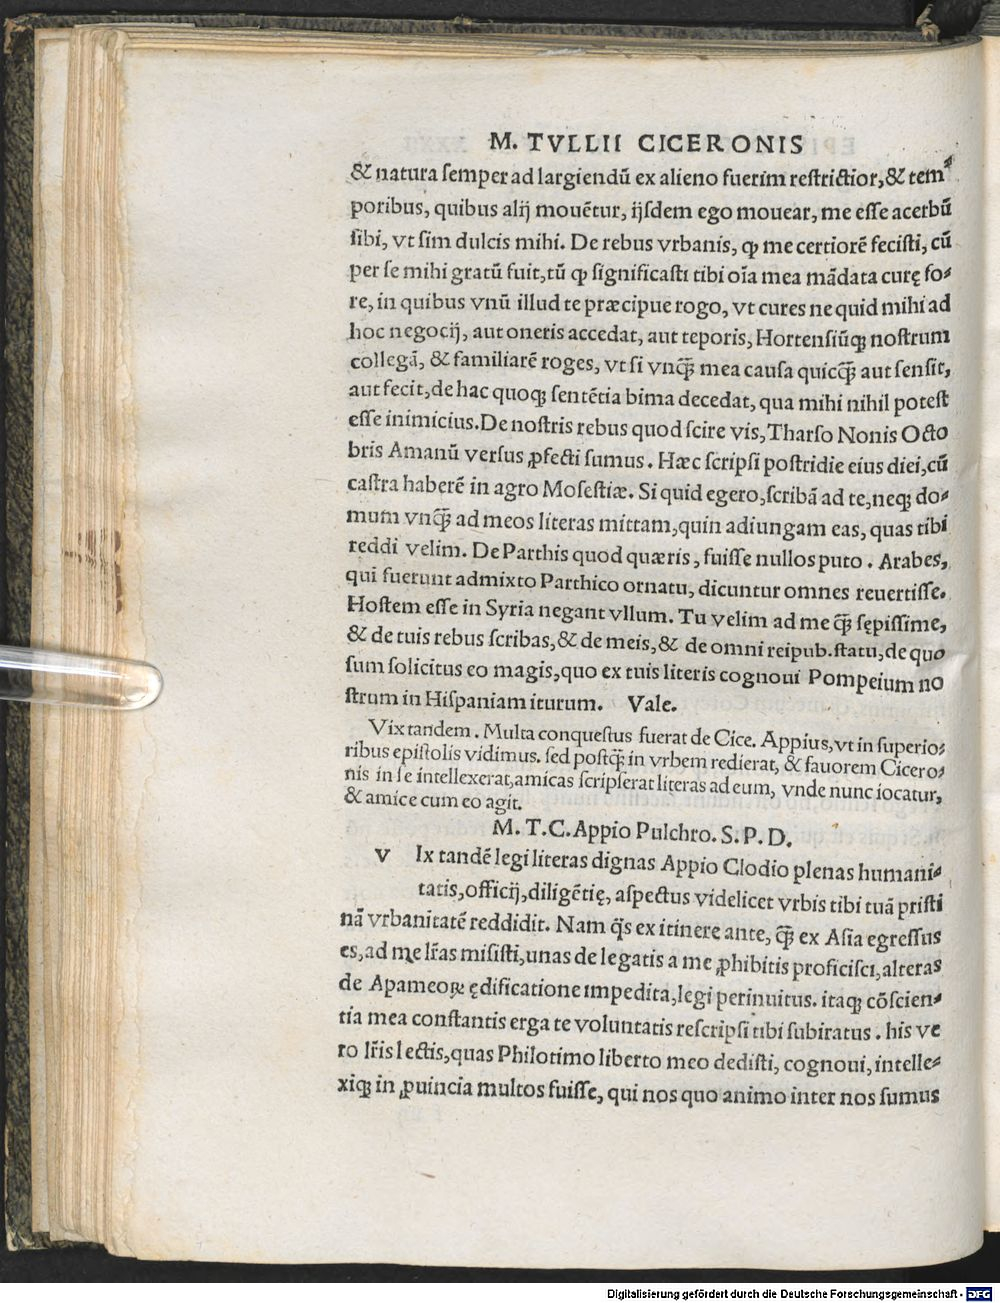 M. TVLLII CICERONIS
& natura ſemper ad largiendū ex alieno fuerim reſtrictior, & tem⸗
poribus, quibus alij mouētur, ijſdem ego mouear, me eſſe acerbū
ſibi, vt ſim dulcis mihi. De rebus vrbanis, ꝙ me certiorē feciſti, cū
per ſe mihi gratū fuit, tū ꝙ ſignificaſti tibi oīa mea mādata curę fo⸗
re, in quibus vnū illud te præcipue rogo, vt cures ne quid mihi ad
hoc negocij, aut oneris accedat, aut teporis, Hortenſiūqꝫ noſtrum
collegā, & familiarē roges, vt ſi vnꝗ̃ mea cauſa quicꝗ̃ aut ſenſit,
aut fecit, de hac quoqꝫ ſentētia bima decedat, qua mihi nihil poteſt
eſſe inimicius. De noſtris rebus quod ſcire vis, Tharſo Nonis Octo
bris Amanū verſus ꝓfecti ſumus. Hæc ſcripſi poſtridie eius diei, cū
caſtra haberē in agro Moſeſtiæ. Si quid egero, ſcribā ad te, neqꝫ do⸗
mum vnꝗ̃ ad meos literas mittam, quin adiungam eas, quas tibi
reddi velim. De Parthis quod quæris, fuiſſe nullos puto. Arabes,
qui fuerunt admixto Parthico ornatu, dicuntur omnes reuertiſſe.
Hoſtem eſſe in Syria negant vllum. Tu velim ad me ꝗ̃ ſępiſſime,
& de tuis rebus ſcribas, & de meis, & de omni reipub. ſtatu, de quo
ſum ſolicitus eo magis, quo ex tuis literis cognoui Pompeium no
ſtrum in Hiſpaniam iturum. Vale.
Vix tandem. Multa conqueſtus fuerat de Cice. Appius, vt in ſuperio⸗
ribus epiſtolis vidimus. ſed poſtꝗ̃ in vrbem redierat, & fauorem Cicero⸗
nis in ſe intellexerat, amicas ſcripſerat literas ad eum, vnde nunc iocatur,
& amice cum eo agit.
M. T. C. Appio Pulchro. S. P. D.
v Ix tandē legi literas dignas Appio Clodio plenas humani⸗
tatis, officij, diligētię, aſpectus videlicet vrbis tibi tuā priſti
nā vrbanitatē reddidit. Nam q̄s ex itinere ante, ꝗ̃ ex Aſia egreſſus
es, ad me lr̄as miſiſti, unas de legatis a me ꝓhibitis proficiſci, alteras
de Apameoꝝ ędificatione impedita, legi perinuitus. itaqꝫ cōſcien⸗
tia mea conſtantis erga te voluntatis reſcripſi tibi ſubiratus. his ve
ro lr̄is lectis, quas Philotimo liberto meo dediſti, cognoui, intelle⸗
xiqꝫ in ꝓuincia multos fuiſſe, qui nos quo animo inter nos ſumus
Digitalisierung gefördert durch die Deutsche Forschungsgemeinschaft - DFG